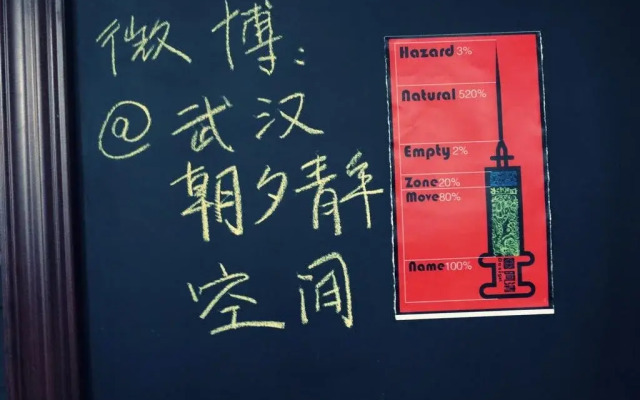 微博:
@武汉
朝夕青年
空间
Hazard 3%
Natural 520%
Empty 2%
Zone20%
Move80%
Name100%